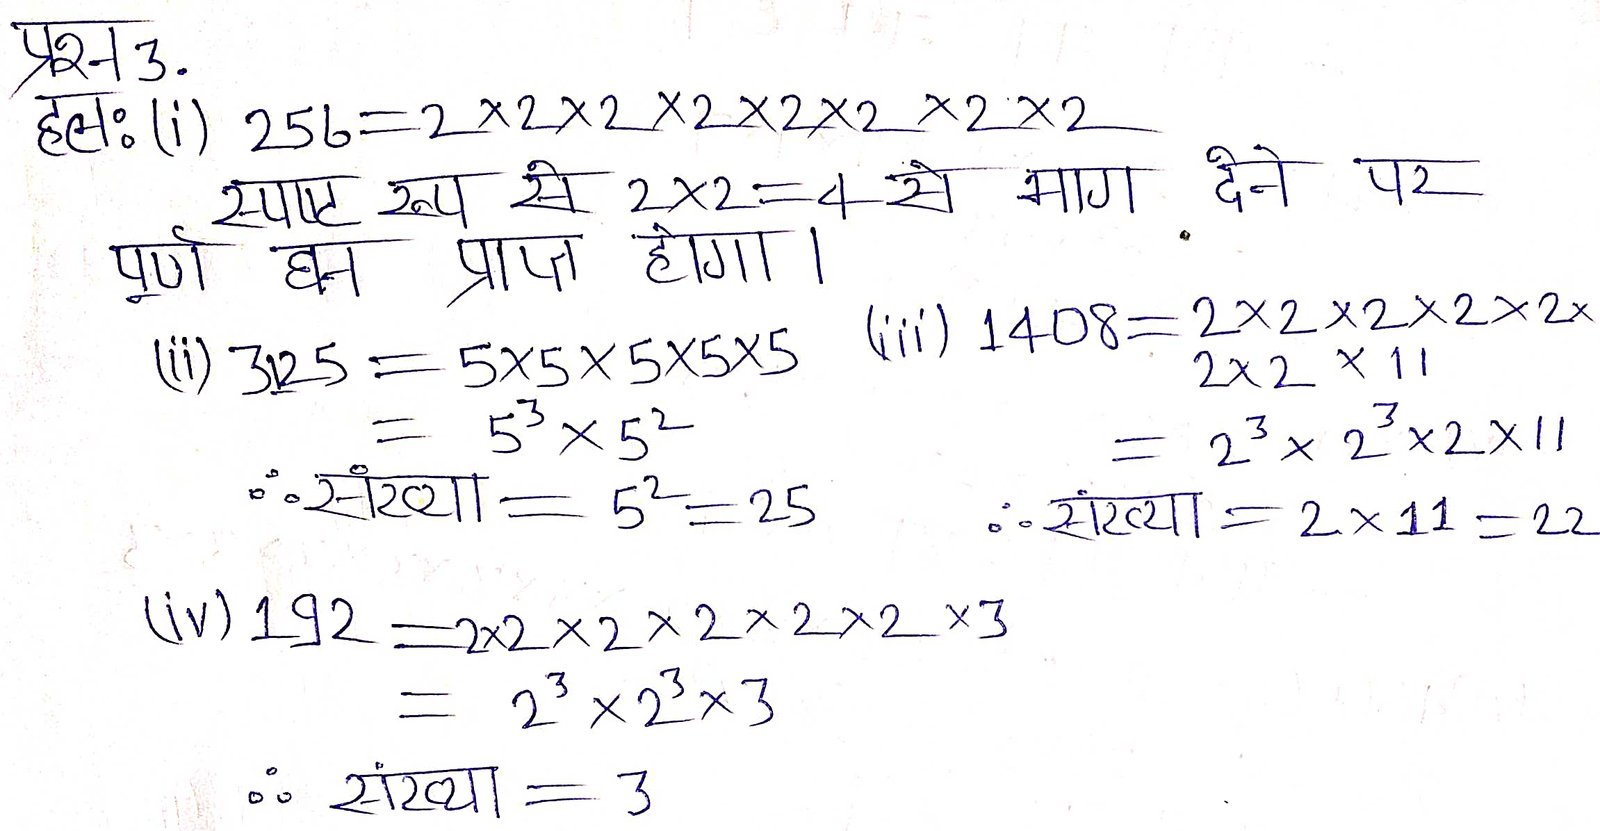 प्रश्न 3.
हलः (i) 256=2×2×2×2×2×2×2×2
स्पष्ट रूप से 2×2=4 से भाग देने पर
पूर्ण घन प्राप्त होगा।
(ii) 3125 = 5×5×5×5×5
= 5³×5²
∴ संख्या = 5²=25
(iii) 1408=2×2×2×2×2×
2×2×11
= 2³×2³×2×11
∴ संख्या = 2×11=22
(iv) 192 =2×2×2×2×2×2×3
= 2³×2³×3
∴ संख्या = 3